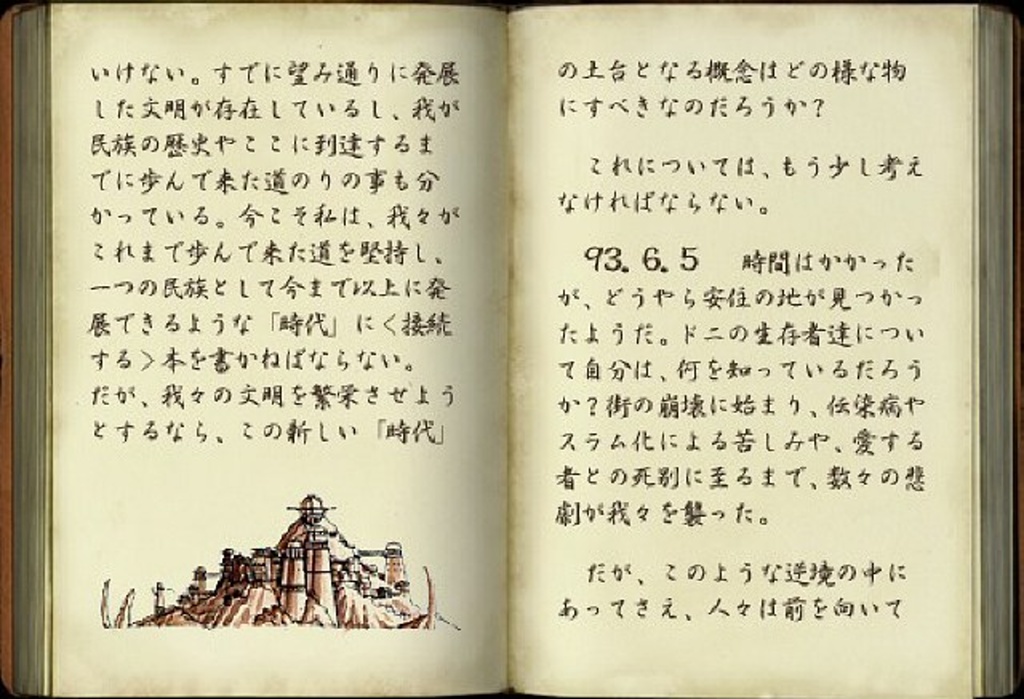 いけない。すでに望み通りに発展
した文明が存在しているし、我が
民族の歴史やここに到達するま
でに歩んで来た道のりの事も分
かっている。今こそ私は、我々が
これまで歩んで来た道を堅持し、
一つの民族として今まで以上に発
展できるような「時代」に<接続
する>本を書かねばならない。
だが、我々の文明を繁栄させよう
とするなら、この新しい「時代」
の土台となる概念はどの様な物
にすべきなのだろうか?
これについては、もう少し考え
なければならない。
93.6.5 時間はかかった
が、どうやら安住の地が見つかっ
たようだ。ドニの生存者達につい
て自分は、何を知っているだろう
か?街の崩壊に始まり、伝染病や
スラム化による苦しみや、愛する
者との死別に至るまで、数々の悲
劇が我々を襲った。
だが、このような逆境の中に
あってさえ、人々は前を向いて